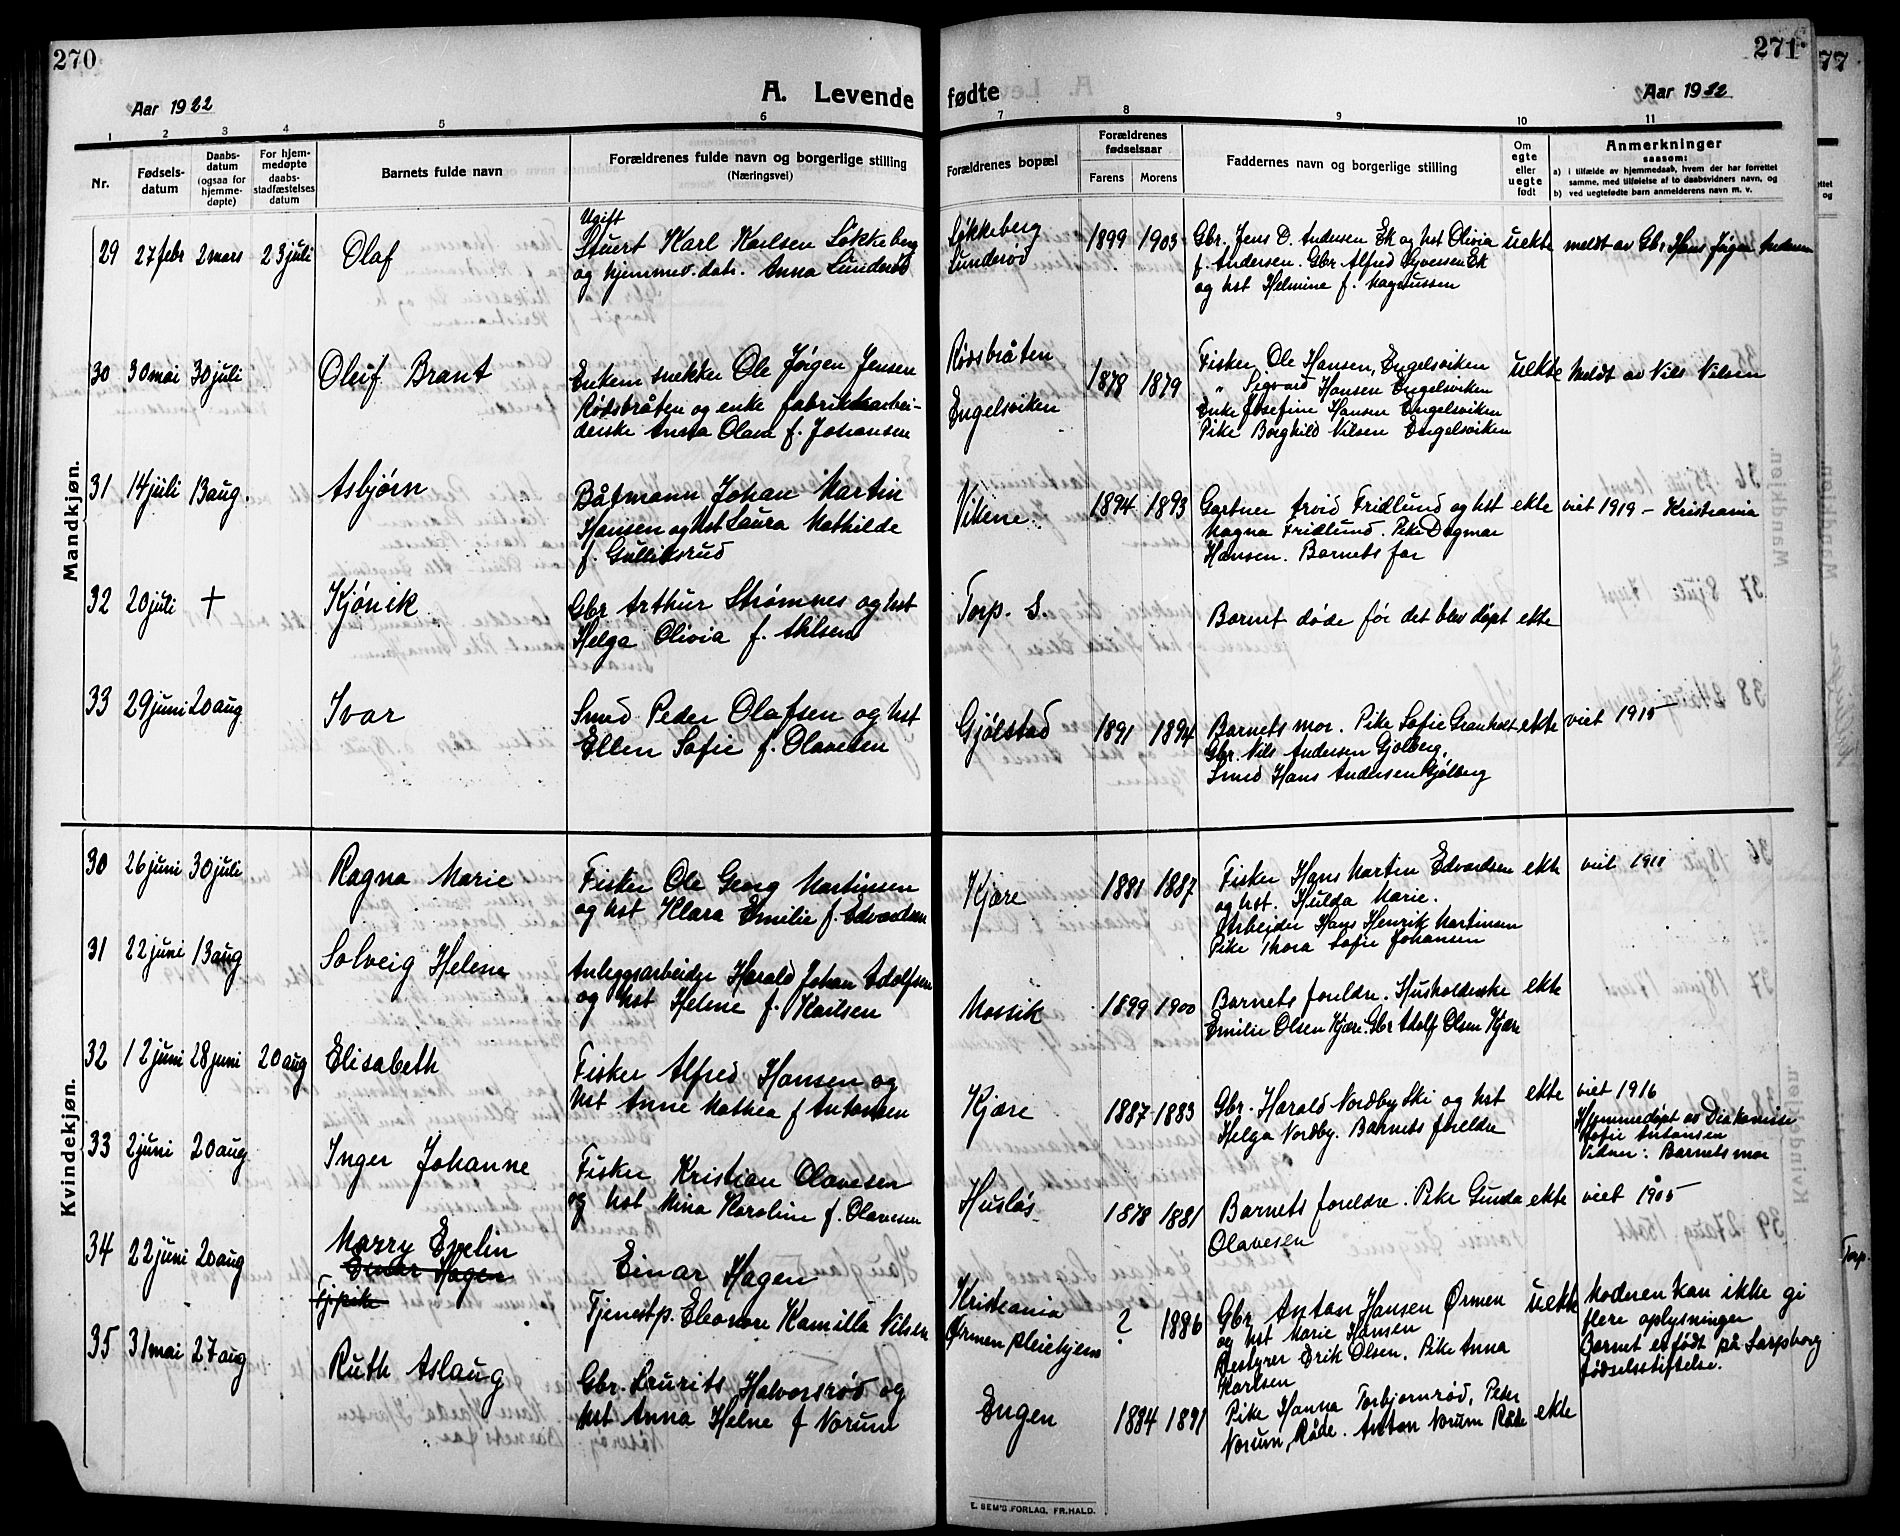 270
Aar 1922
A. Levende
1 2 3 4 5 6
Nr.
Fødsels-
datum
Daabs-
datum
(ogsaa for
hjemme-
døpte)
For hjem-
medøpte
daabs-
stadfæstelses
datum
Barnets fulde navn
Forældrenes fulde navn og borgerlige stilling
(Næringsvei)
Mandkjøn.
29 27 febr 2 mars 23 juli Olaf
Ugift
Stuert Karl Karlsen Løkkeberg
og hjemmev. datr. Anna Lunderød
30 30 mai 30 juli Oleif Brant
Enkem snekker Ole Jørgen Jensen
Rødsbråten og enke fabrikkarbei-
derske Anna Olava f. Johansen
31 14 juli 13 aug. Asbjørn
Båtmann Johan Martin
Hansen og hst Laura Mathilde
f. Gulliksrud
32 20 juli + Kjønik
Gbr Arthur Strømnes og hst
Helga Olivia f. Ahlsen
33 29 juni 20 aug Ivar
Smed Peder Olafsen og hst
Ellen Sofie f. Olavesen
Kvindekjøn.
30 26 juni 30 juli Ragna Marie
Fisker Ole Georg Martinsen
og hst Klara Emilie f. Edvardsen
31 22 juni 13 aug Solveig Helene
Anleggsarbeider Harald Johan Adolfsen
og hst Helene f. Karlsen
32 12 juni 28 juni 20 aug Elisabeth
Fisker Alfred Hansen og
hst Anne Mathea f Antonsen
33 2 juni 20 aug Inger Johanne
Fisker Kristian Olavesen
og hst Mina Karoline f. Olavesen
34 22 juni 20 aug Marry Evelin
Einar Hagen
Tj. pike
Einar Hagen
Tjenestp. Eleonore Kamilla Nilsen
35 31 mai 27 aug Ruth Aslaug
Gbr. Laurits Halvorsrød og
hst Anna Helene f Norum
271
77
fødte
Aar 1922
7 8 9 10 11
Forældrenes bopæl
Forældrenes
fødselsaar
Farens Morens
Faddernes navn og borgerlige stilling
Om
egte
eller
uegte
født
Anmerkninger
saasom:
a) i tilfælde av hjemmedaab, hvem der har forrettet
samme, med tilføielse af to daabsvidners navn, og
b) ved uegtefødte børn anmelderens navn m. v.
Løkkeberg
Lunderød
1899 1903
Gbr. Jens D. Andersen Ek og hst Olivia
f. Andersen. Gbr. Alfred Syversen Ek
og hst Helmine f. Magnussen
uekte
meldt av Gbr Hans Jørgen Andersen
Rødsbråten
Engelsviken
1878 1879
Fisker Ole Hansen, Engelsviken
" Sigvard Hansen Engelsviken
Enke Josefine Hansen Engelsviken
Pike Borghild Nilsen Engelsviken
uekte
Meldt av Nils Nilsen
Vikene.
1894 1893
Gartner Arvid Fridlund og hst
Magna Fridlund. Pike Dagmar
Hansen. Barnets far
ekte
viet 1919 - Kristiania
Torp. S.
Barnet døde før det blev døpt ekte
Gjølstad
1891 1894
Barnets mor. Pike Sofie Granholt
Gbr. Nils Andersen Gjølberg.
Smed Hans Andersen Gjølberg
ekte
viet 1915
Kjære
1881 1887
Fisker Hans Martin Edvardsen
og hst. Hulda Marie.
Arbeider Hans Henrik Martinsen
Pike Thora Sofie Johansen
ekte
viet 1911
Mossik
1899 1900
Barnets foreldre. Husholderske
Emilie Olsen Kjære. Gbr Adolf Olsen Kjære
ekte
Kjære
1887 1883
Gbr. Harald Nordby Ski og hst
Helga Nordby. Barnets foreldre
ekte
viet 1916
Hjemmedøpt av Diakonisse
Sofie Antonsen
Vidner: Barnets mor
Husløs
1878 1881
Barnets foreldre. Pike Gunda
Olavesen
ekte
viet 1905
Kristiania
Ørmen pleiehjem
? 1886
Gbr. Anton Hansen Ørmen
og hst Marie Hansen
Bestyrer Erik Olsen. Pike Anna
Karlsen
uekte
Moderen kan ikke gi
flere oplysninger
Barnet er født på Sarpsborg
fødselsstiftelse.
Engen
1884 1891
Pike Hanna Torbjørnrød, Peder
Norum, Råde. Anton Norum Råde
ekte
Torp.
E. SEM'S FORLAG, FR.HALD.